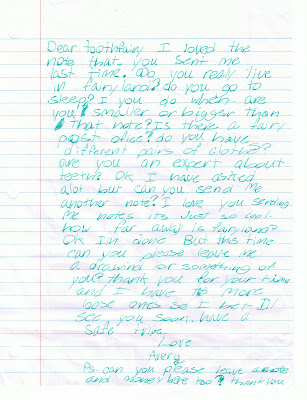 Dear toothfairy I loved the
note that you sent me
last time. Do you really live
in fairyland? do you go to
sleep? I you do when. are
you smaller or bigger than
that note? Is there a fairy
post office? do you have
different pairs of clothes?
are you an expert about
teeth? Ok I have asked
alot but can you send me
another note? I love you sending
me notes its just so cool.
how far away is fairyland?
Ok Im done But this time
can you please leave me
a drawind or something of
you? thank you for your time
and I have 10 more
loose ones so I bet I'll
see you soon. have a
safe time.
Love
Avery
Ps. can you please leave a note
and money here too? thank you